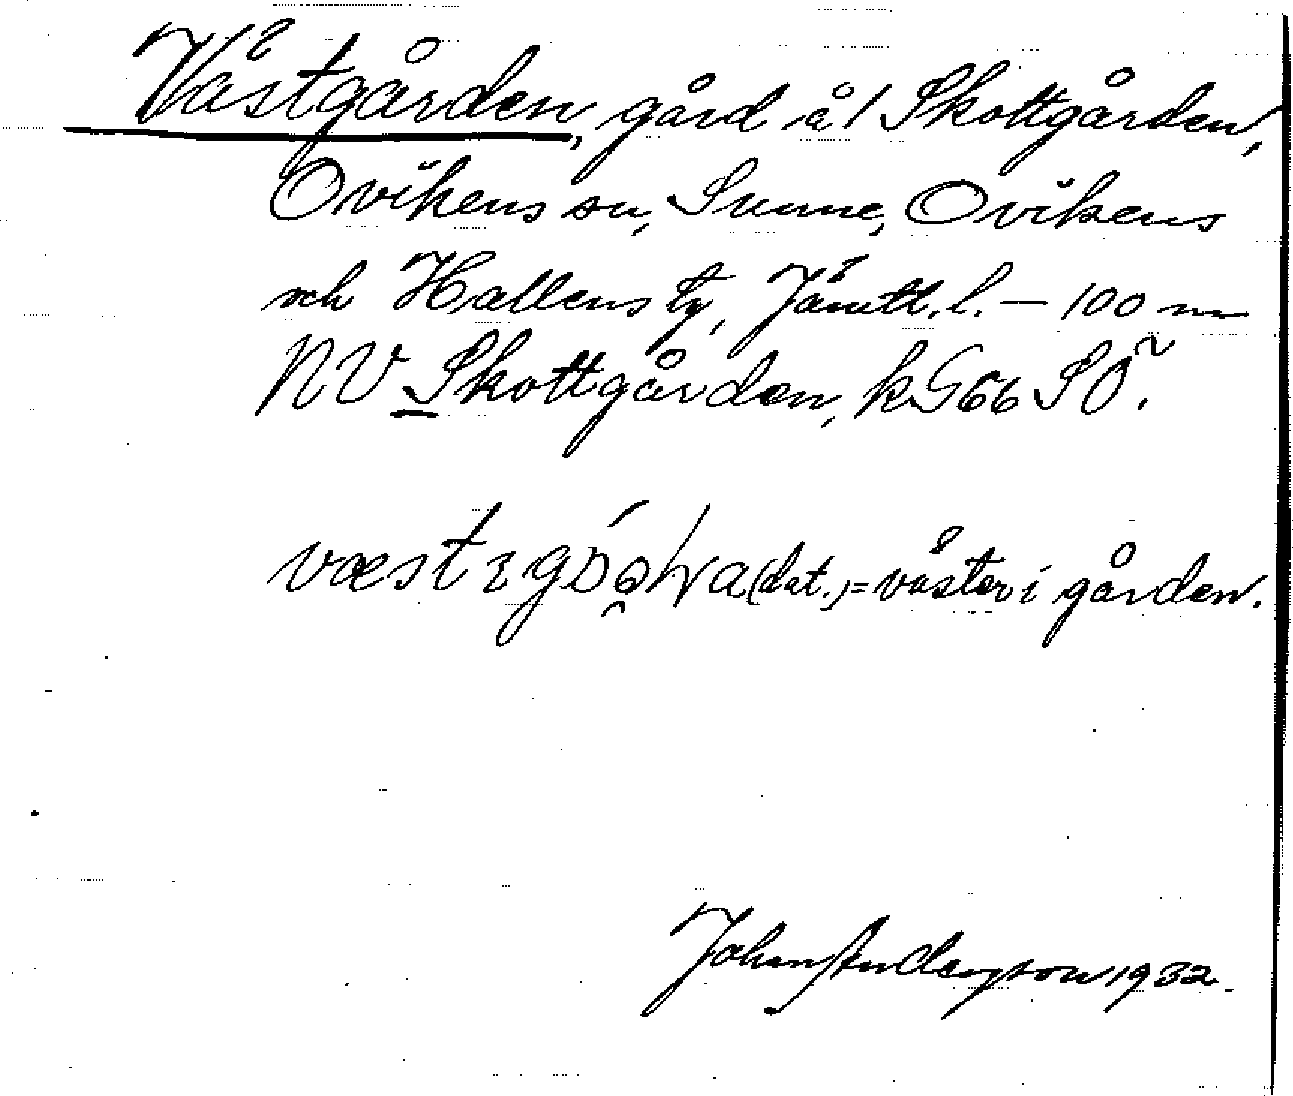 Västgården, gård å 1 Skottgården,
Ovikens sn, Sunne, Ovikens
och Hallens tg, Jämtl. l. — 100 m
NV Skottgården, kG66 SÖ.
(dat.) = väster i gården.
Johan Anderson 1932.